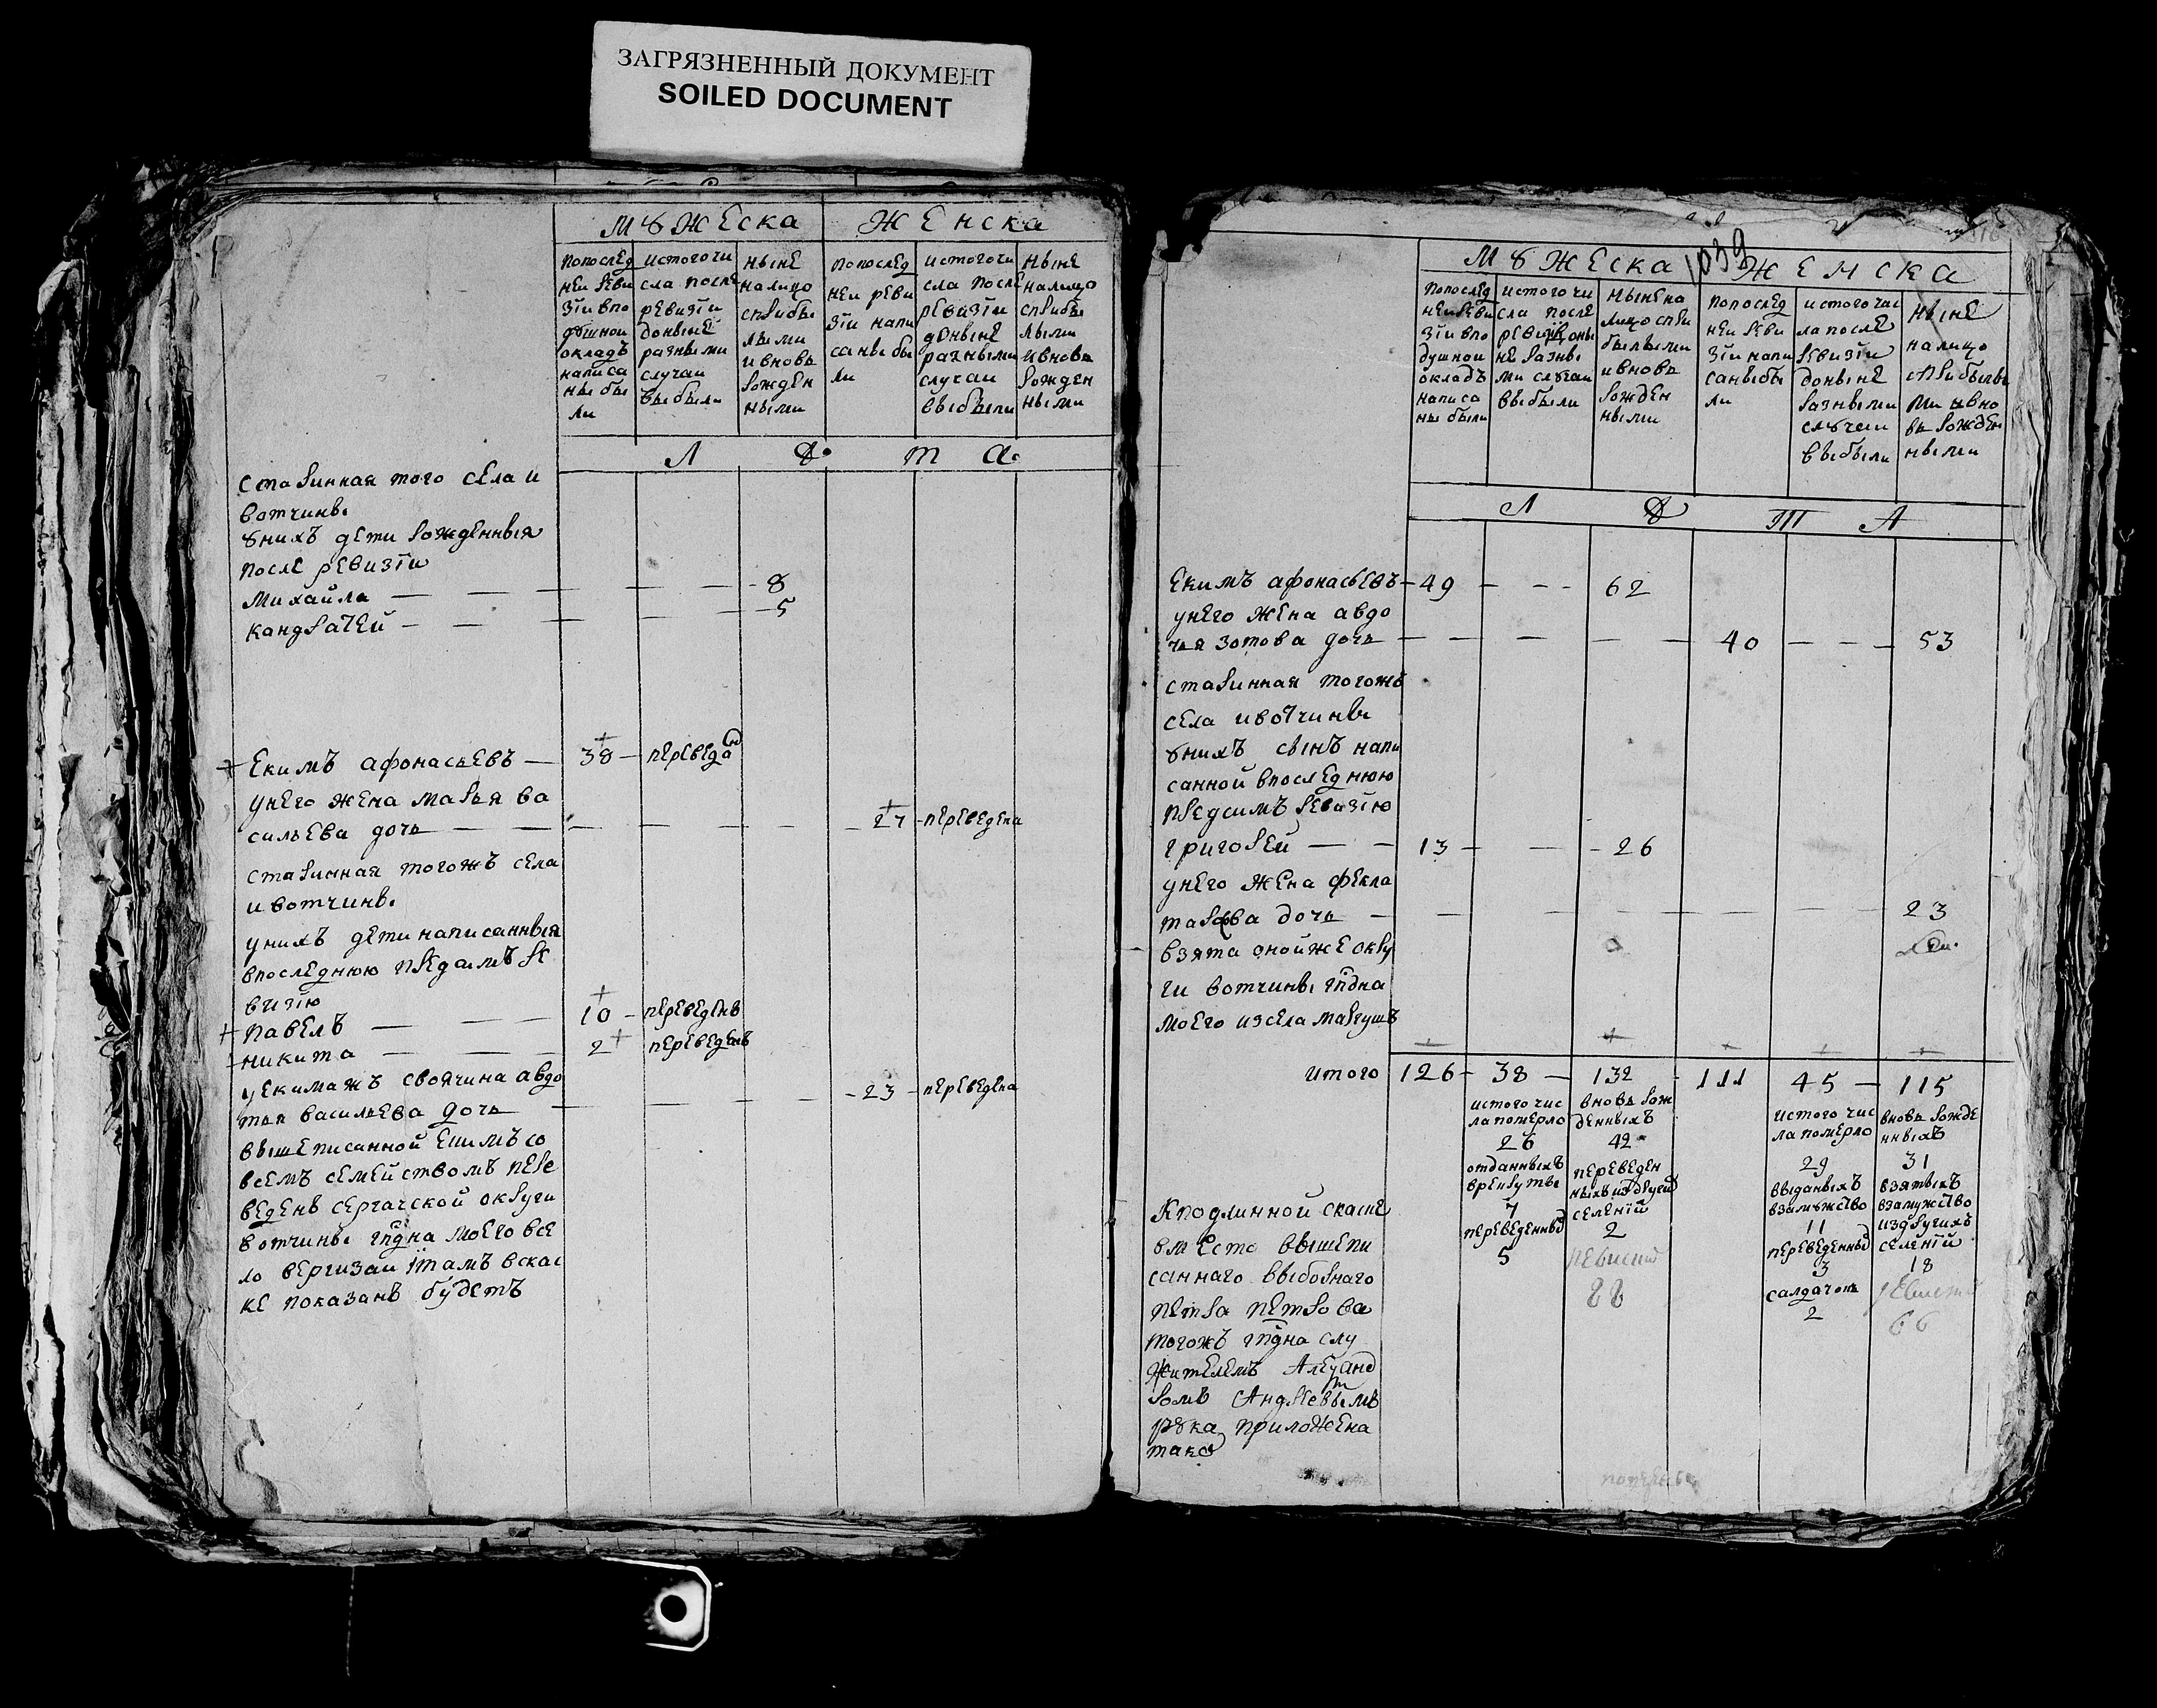 ЗАГРЯЗНЕННЫЙ ДОКУМЕНТ
SOILED DOCUMENT
Мȣжеска Женска
попослед
неи реви
зіи впо
дȣшнои
окладъ
написа
ны бы
ли
истогочи
сла после
ревизіи
донынѣ
разными
случаи
выбыли
нынѣ
налицо
сприбы
лыми
ивновь
рожден
ными
попослед
неи реви
зіи напи
саны бы
ли
истогочи
сла после
ревизіи
донынѣ
разными
случаи
выбыли
нынѣ
налицо
сприбы
лыми
ивновь
рожден
ными
Л ѣ т а
старинная того села и
вотчины
ȣнихъ дети рожденныя
после ревизіи
Михайла — — — — 8
кандратей — — — 5
Екимъ афонасьевъ — 38 — переведен
унего жена марья ва
сильева дочь — — — 27 — переведена
старинная тогожъ села
ивотчины
унихъ дети написанныя
впоследнюю предсимъ ре
визію
павелъ — — — 10 — переведенъ
никита — — — 2 переведенъ
уекимажъ своячина авдо
тья васильева дочь — — — 23 — переведена
вышеписанной екимъ со
всемъ семействомъ пере
веденъ сергачской округи
вотчины гпдна моего всe
ло вергизаи ітамъ вскас
ке показанъ будетъ
1039
Мȣжеска Женска
попослед
неиреви
зіи впо
душнои
окладъ
написа
ны были
истогочи
сла после
ревизіи доны
не разны
ми случаи
выбыли
нынена
лицо спри
былыми
ивновь
рожден
ными
попослед
неи реви
зіи напи
саны бы
ли
истогочис
ла после
ревизіи
донынѣ
разными
слȣчаи
выбыли
нынѣ
налицо
сприбылы
ми ивно
вь рожден
ными
Л ѣ Т А
Екимъ афонасьевъ — 49 — — 62
унего жена авдо
чья зотова дочь — — — — 40 — — 53
старинная тогожъ
села ивотчины
ȣнихъ сынъ напи
санной впоследнюю
предсимъ ревизію
григорей — — 13 — — 26
унего жена фекла
дочь — — — — 23
взята оной же окру
ги вотчины гпдна
моего изсела маргушъ
итого 126 — 38 — 132 — 111 45 — 115
истого чис
ла померло
26
отданныхъ
врекруты
7
переведенных
5
вновь рож
денныхъ
42
переведен
ныхъ издругих
селеній
2
ревиски
88
истого чис
ла померло
29
выданыхъ
взамужство
11
переведенных
3
салдаток
2
вновь рожде
нныхъ
31
взятыхъ
взамужство
издругихъ
селеній
18
66
Кподлинной скаске
вместо вышепи
саннаго выборнаго
петра петрова
тогожъ гпдна слу
жителемъ Алеѯанд
ромъ Андреевымъ
рȣка приложена
тако